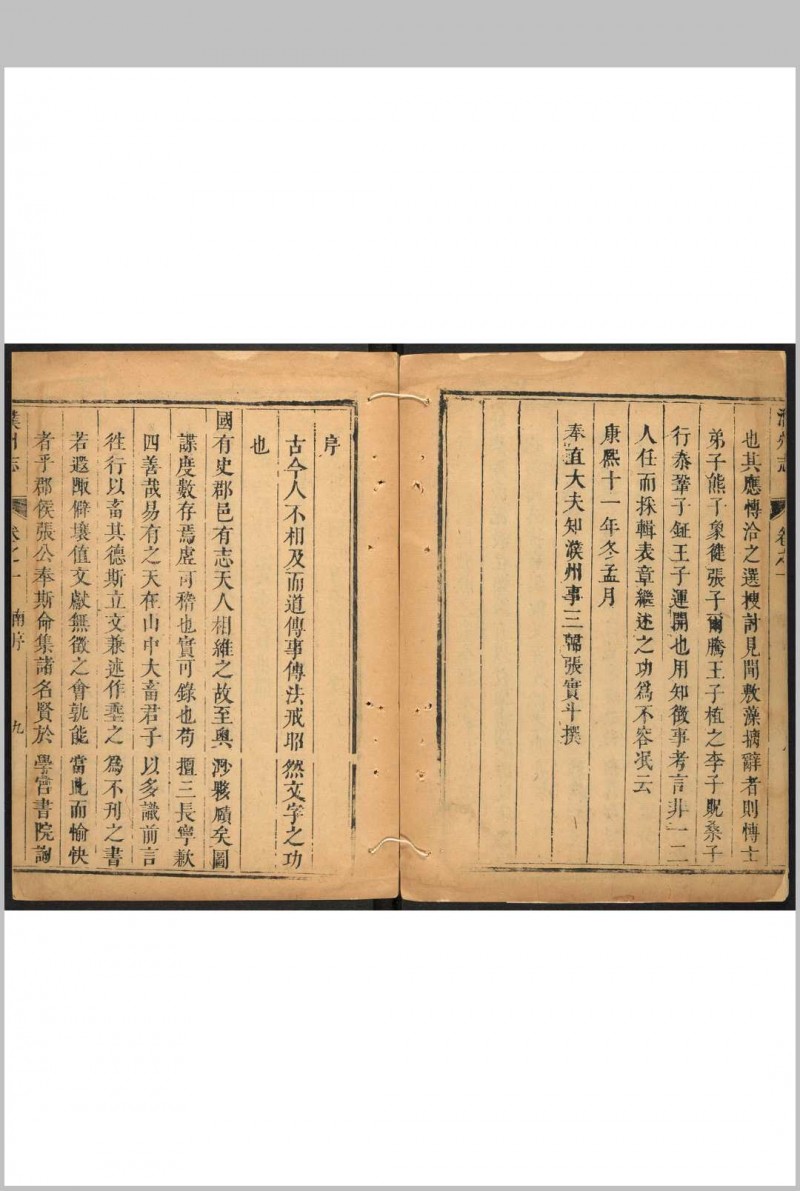 濮州志 卷之一
也其應博洽之選搜討見聞敷藻摛辭者則博士
弟子熊子象徒張子爾騰王子植之李子貺桑子
行泰鞏子鉦王子運開也用知徵事考言非一二
人任而採輯表章繼述之功為不容泯云
康熙十一年冬孟月
奉直大夫知濮州事三韓張實斗撰
序
古今人不相及而道傳事傳法戒昭然文字之功
也
國有史郡邑有志天人相維之故至輿渺夥賾矣圖
諜度數存焉虛可稽也實可錄也苟擅三長寧歉
四善哉易有之天在山中大畜君子以多識前言
徃行以畜其德斯立文兼述作垂之為不刊之書
若遐陬僻壤值文獻無徵之會孰能當此而愉快
者乎郡侯張公奉斯侖集諸名賢於學宮書院詢
濮州志 卷之一 南序 九